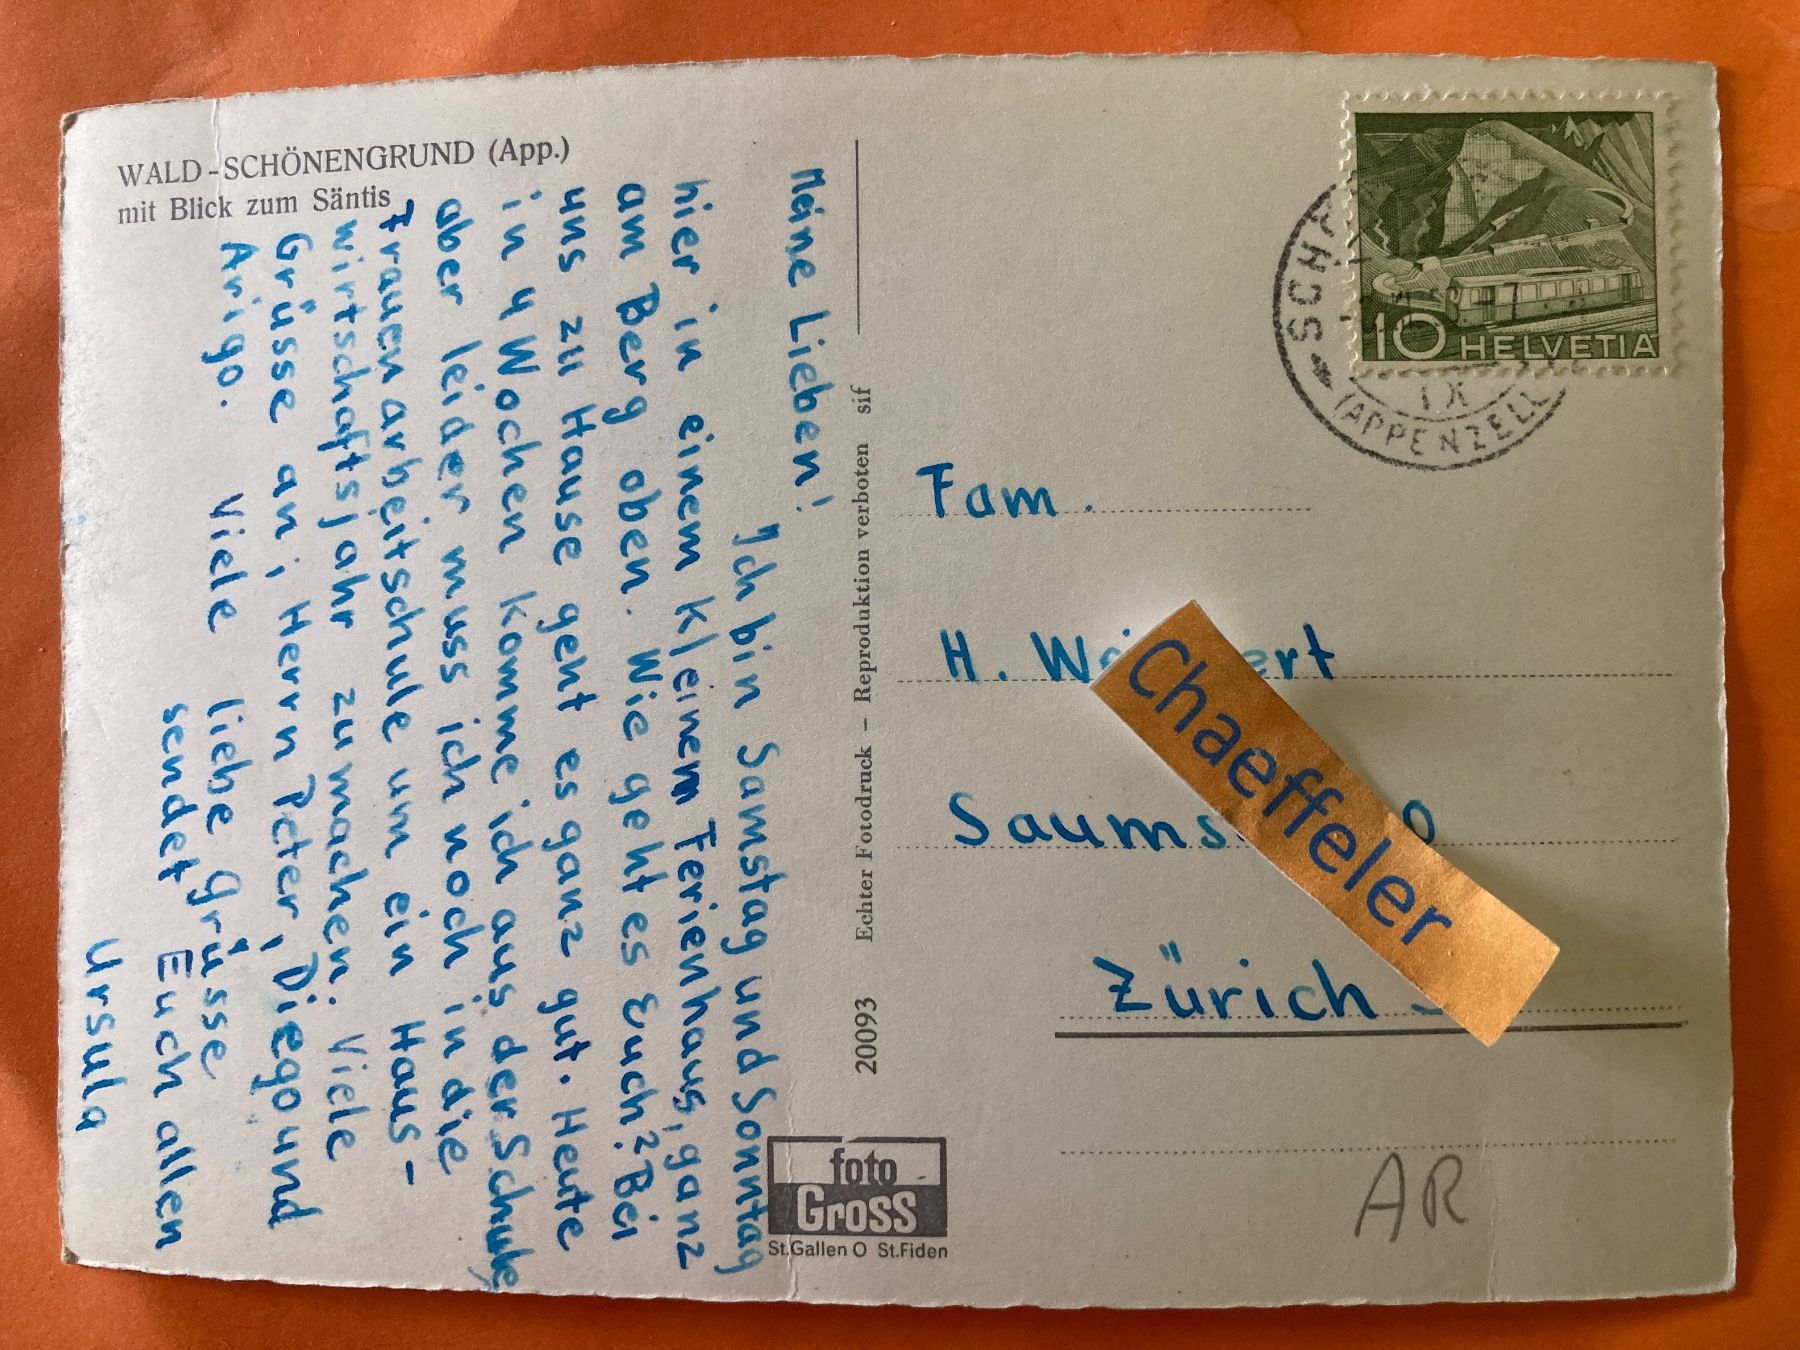 WALD-SCHÖNENGRUND (App.)
mit Blick zum Säntis
Meine Lieben!
Ich bin Samstag und Sonntag
hier in einem kleinem Ferienhaus, ganz
am Berg oben. Wie geht es Euch? Bei
uns zu Hause geht es ganz gut. Heute
in 4 Wochen komme ich aus der Schule,
aber leider muss ich noch in die
Frauenarbeitschule um ein Haus-
wirtschaftsjahr zu machen. Viele
Grüsse an; Herrn Peter, Diego und
Arigo. Viele liebe grüsse
sendet Euch allen
Ursula
20093 Echter Fotodruck – Reproduktion verboten sif
foto
Gross
St.Gallen O St.Fiden
10 HELVETIA
SCHÄ
IX
(APPENZELL
Fam.
H.
Chaeffeler
Zürich
AR